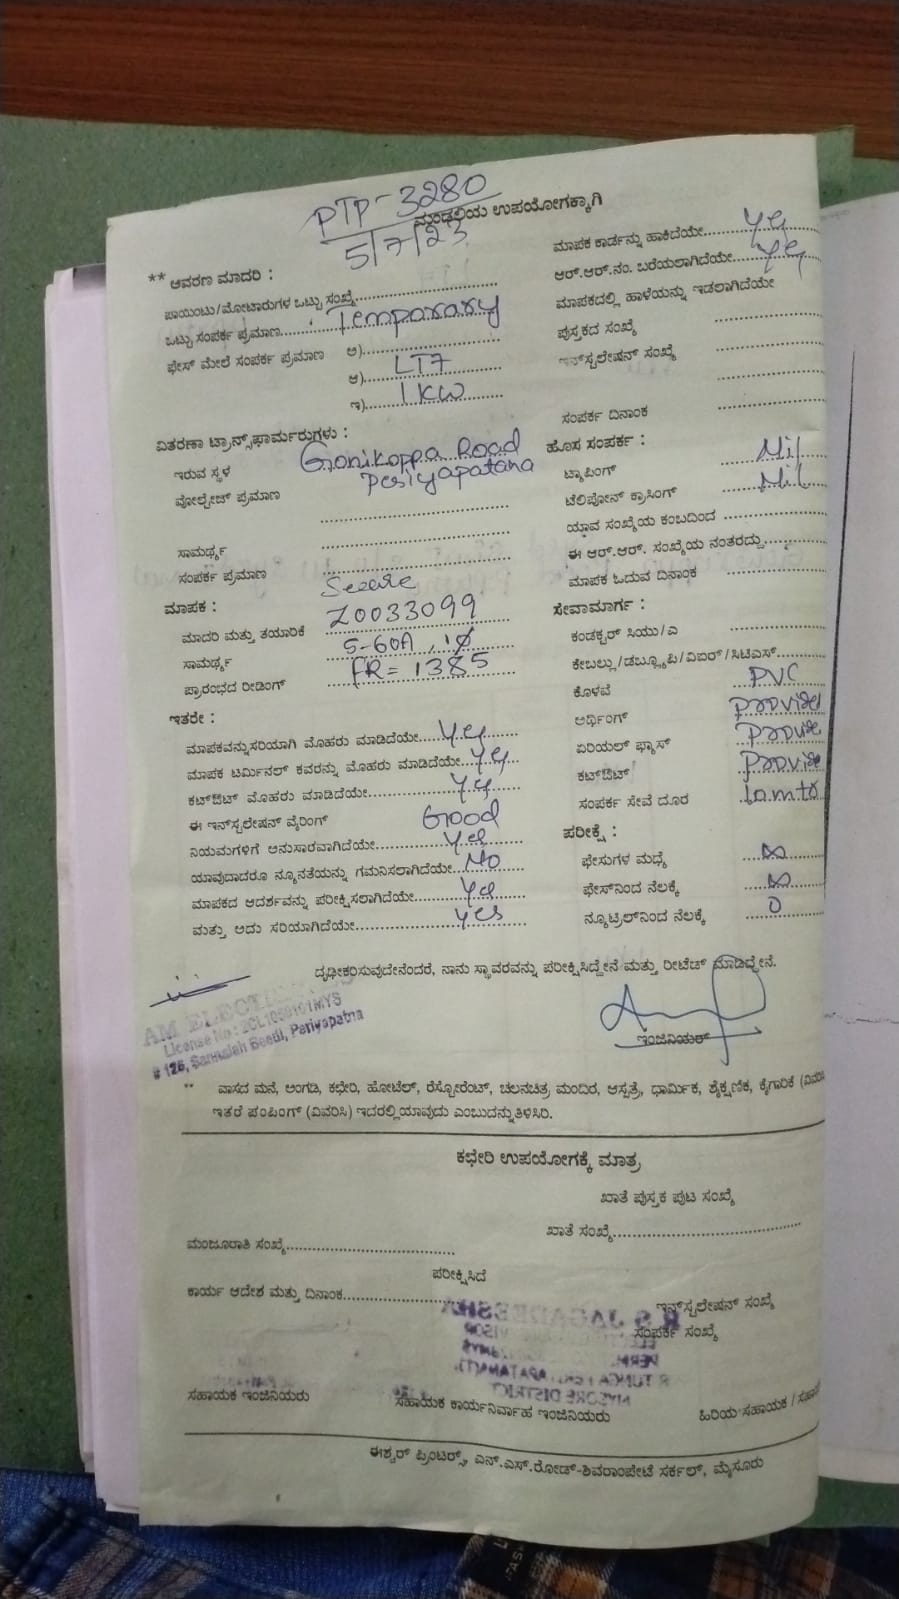 PTP-3280
5/7/23
ಮಂಡಲಿಯ ಉಪಯೋಗಕ್ಕಾಗಿ
** ಆವರಣ ಮಾದರಿ :
ಪಾಯಿಂಟು/ಮೋಟಾರುಗಳ ಒಟ್ಟು ಸಂಖ್ಯೆ
ಒಟ್ಟು ಸಂಪರ್ಕ ಪ್ರಮಾಣ Temporary
ಫೇಸ್ ಮೇಲೆ ಸಂಪರ್ಕ ಪ್ರಮಾಣ ಅ)
ಆ) LT7
ಇ) 1KW
ವಿತರಣಾ ಟ್ರಾನ್ಸ್‌ಫಾರ್ಮರುಗಳು :
ಇರುವ ಸ್ಥಳ Gonikoppa Road
ವೋಲ್ಟೇಜ್ ಪ್ರಮಾಣ Periyapatana
ಸಾಮರ್ಥ್ಯ
ಸಂಪರ್ಕ ಪ್ರಮಾಣ
ಮಾಪಕ : Secure
ಮಾದರಿ ಮತ್ತು ತಯಾರಿಕೆ Z0033099
ಸಾಮರ್ಥ್ಯ 5-60A, 1Ø
ಪ್ರಾರಂಭದ ರೀಡಿಂಗ್ FR= 1385
ಇತರೇ :
ಮಾಪಕವನ್ನು ಸರಿಯಾಗಿ ಮೊಹರು ಮಾಡಿದೆಯೇ yes
ಮಾಪಕ ಟರ್ಮಿನಲ್ ಕವರನ್ನು ಮೊಹರು ಮಾಡಿದೆಯೇ yes
ಕಟ್‌ಔಟ್ ಮೊಹರು ಮಾಡಿದೆಯೇ yes
ಈ ಇನ್‌ಸ್ಟಲೇಷನ್ ವೈರಿಂಗ್ Good
ನಿಯಮಗಳಿಗೆ ಅನುಸಾರವಾಗಿದೆಯೇ yes
ಯಾವುದಾದರೂ ನ್ಯೂನತೆಯನ್ನು ಗಮನಿಸಲಾಗಿದೆಯೇ No
ಮಾಪಕದ ಆದರ್ಶವನ್ನು ಪರೀಕ್ಷಿಸಲಾಗಿದೆಯೇ yes
ಮತ್ತು ಅದು ಸರಿಯಾಗಿದೆಯೇ yes
ಮಾಪಕ ಕಾರ್ಡನ್ನು ಹಾಕಿದೆಯೇ yes
ಆರ್.ಆರ್.ನಂ. ಬರೆಯಲಾಗಿದೆಯೇ yes
ಮಾಪಕದಲ್ಲಿ ಹಾಳೆಯನ್ನು ಇಡಲಾಗಿದೆಯೇ
ಪುಸ್ತಕದ ಸಂಖ್ಯೆ
ಇನ್‌ಸ್ಟಲೇಷನ್ ಸಂಖ್ಯೆ
ಸಂಪರ್ಕ ದಿನಾಂಕ
ಹೊಸ ಸಂಪರ್ಕ :
ಟ್ಯಾಪಿಂಗ್ Nil
ಟೆಲಿಪೋನ್ ಕ್ರಾಸಿಂಗ್ Nil
ಯಾವ ಸಂಖ್ಯೆಯ ಕಂಬದಿಂದ
ಈ ಆರ್.ಆರ್. ಸಂಖ್ಯೆಯ ನಂತರದ್ದು
ಮಾಪಕ ಓದುವ ದಿನಾಂಕ
ಸೇವಾಮಾರ್ಗ :
ಕಂಡಕ್ಟರ್ ಸಿಯು/ಎ
ಕೇಬಲ್ಲು/ಡಬ್ಲ್ಯೂಪಿ/ವಿಐರ್/ಸಿಟಿಎಸ್
ಕೊಳವೆ PVC
ಅರ್ಥಿಂಗ್ Provided
ಏರಿಯಲ್ ಫ್ಯೂಸ್ Provide
ಕಟ್‌ಔಟ್ Provide
ಸಂಪರ್ಕ ಸೇವೆ ದೂರ 10mtr
ಪರೀಕ್ಷೆ :
ಫೇಸುಗಳ ಮಧ್ಯೆ ∞
ಫೇಸ್‌ನಿಂದ ನೆಲಕ್ಕೆ ∞
ನ್ಯೂಟ್ರಲ್‌ನಿಂದ ನೆಲಕ್ಕೆ 0
ದೃಢೀಕರಿಸುವುದೇನೆಂದರೆ, ನಾನು ಸ್ಥಾವರವನ್ನು ಪರೀಕ್ಷಿಸಿದ್ದೇನೆ ಮತ್ತು ರೀಟೆಡ್ ಮಾಡಿದ್ದೇನೆ.
License No : 2CL1050101MYS
# 126, Beedi, Periyapatna
ಇಂಜಿನಿಯರ್
** ವಾಸದ ಮನೆ, ಅಂಗಡಿ, ಕಛೇರಿ, ಹೋಟೆಲ್, ರೆಸ್ಟೋರೆಂಟ್, ಚಲನಚಿತ್ರ ಮಂದಿರ, ಆಸ್ಪತ್ರೆ, ಧಾರ್ಮಿಕ, ಶೈಕ್ಷಣಿಕ, ಕೈಗಾರಿಕೆ
ಇತರೆ ಪಂಪಿಂಗ್ (ವಿವರಿಸಿ) ಇದರಲ್ಲಿ ಯಾವುದು ಎಂಬುದನ್ನು ತಿಳಿಸಿರಿ.
ಕಛೇರಿ ಉಪಯೋಗಕ್ಕೆ ಮಾತ್ರ
ಖಾತೆ ಪುಸ್ತಕ ಪುಟ ಸಂಖ್ಯೆ
ಖಾತೆ ಸಂಖ್ಯೆ
ಮಂಜೂರಾತಿ ಸಂಖ್ಯೆ
ಪರೀಕ್ಷಿಸಿದೆ
ಕಾರ್ಯ ಆದೇಶ ಮತ್ತು ದಿನಾಂಕ
ಇನ್‌ಸ್ಟಲೇಷನ್ ಸಂಖ್ಯೆ
ಸಂಪರ್ಕ ಸಂಖ್ಯೆ
ಸಹಾಯಕ ಇಂಜಿನಿಯರು
ಸಹಾಯಕ ಕಾರ್ಯನಿರ್ವಾಹ ಇಂಜಿನಿಯರು
ಹಿರಿಯ ಸಹಾಯಕ /
ಈಶ್ವರ್ ಪ್ರಿಂಟರ್ಸ್, ಎನ್.ಎಸ್.ರೋಡ್-ಶಿವರಾಂಪೇಟೆ ಸರ್ಕಲ್, ಮೈಸೂರು